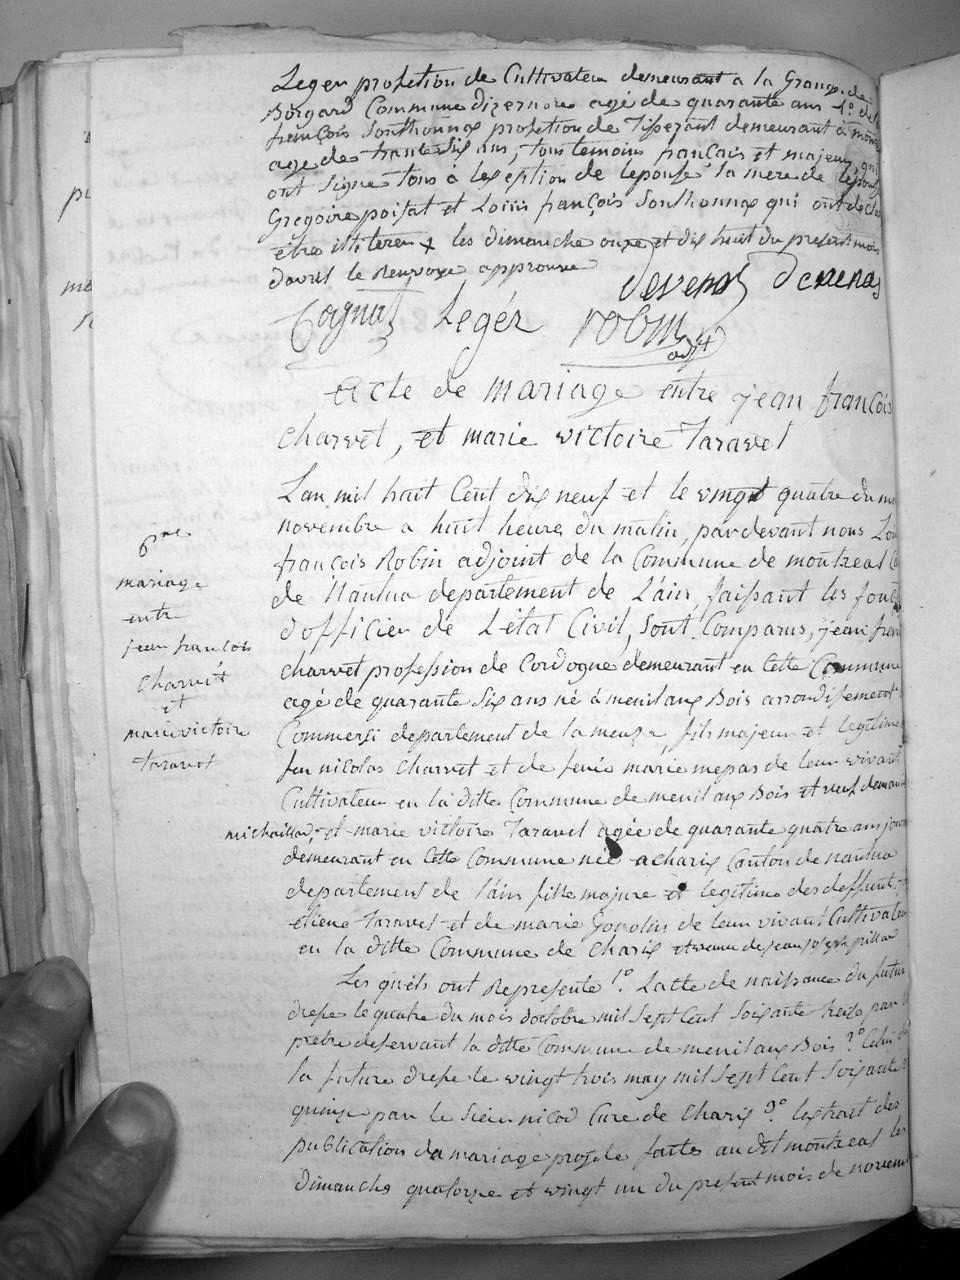 Leger profestion de Cultivateur demeurant a la Grange de
Borgard Commune dizernore agé de quarante ans
françois Sonthonnax profestion de Tisserant demeurant à
age de trante six ans, tous temoins français et majeur, qui
ont signe tous à lexseption de lepouse la mere de
Gregoire poisat et Louis françois Sonthonnax qui ont
être illiteren les dimanche onze et dix huit du present mois
davril le Renvoye approuve
Cognat Legér robin adjt
Acte de mariage entre jean françois
charvet, et marie victoire Taravel
Lan mil huit Cent dix neuf et le vingt quatre du
novembre a huit heure du matin, pardevant nous
françois Robin adjoint de la Commune de montreal
de Nantua departement de Lain faisant les
dofficier de Létat Civil, Sont Comparus, jean
charvet profession de Cordogne demeurant en Cette Commune
agé de quarante Six ans né à menil aux Bois arrondisement
Commersi departement de la meuse, fils majeur et legitime
feu nicolas charvet et de feue marie mepas de leur vivant
Cultivateur en la ditte Commune de menil aux Bois et veuf
michaillard, et marie victoire Taravel agée de quarante quatre ans
demeurant en Cette Commune née a charix Canton de nantua
departement de lain fille majure et legitime des deffunt
etiene Taravel et de marie de leur vivant Cultivateur
en la ditte Commune de Charix et veuve de jean joseph
Les quels ont Represente 1º. Lacte de naissance du futur
drese le quatre du mois doctobre mil Sept Cent Soixante treize par
pretre deservant la ditte Commune de menil aux Bois 2º Celui
la future drese le vingt trois may mil Sept Cent Soixante
quinze par le Sieur nicod Cure de Charix 3º Lextrait des
publication da mariage projete faites au dit montreal les
dimanche quatorze et vingt un du present mois de
6me
mariage
entre
jean françois
Charvet
et
marie victoire
taravet